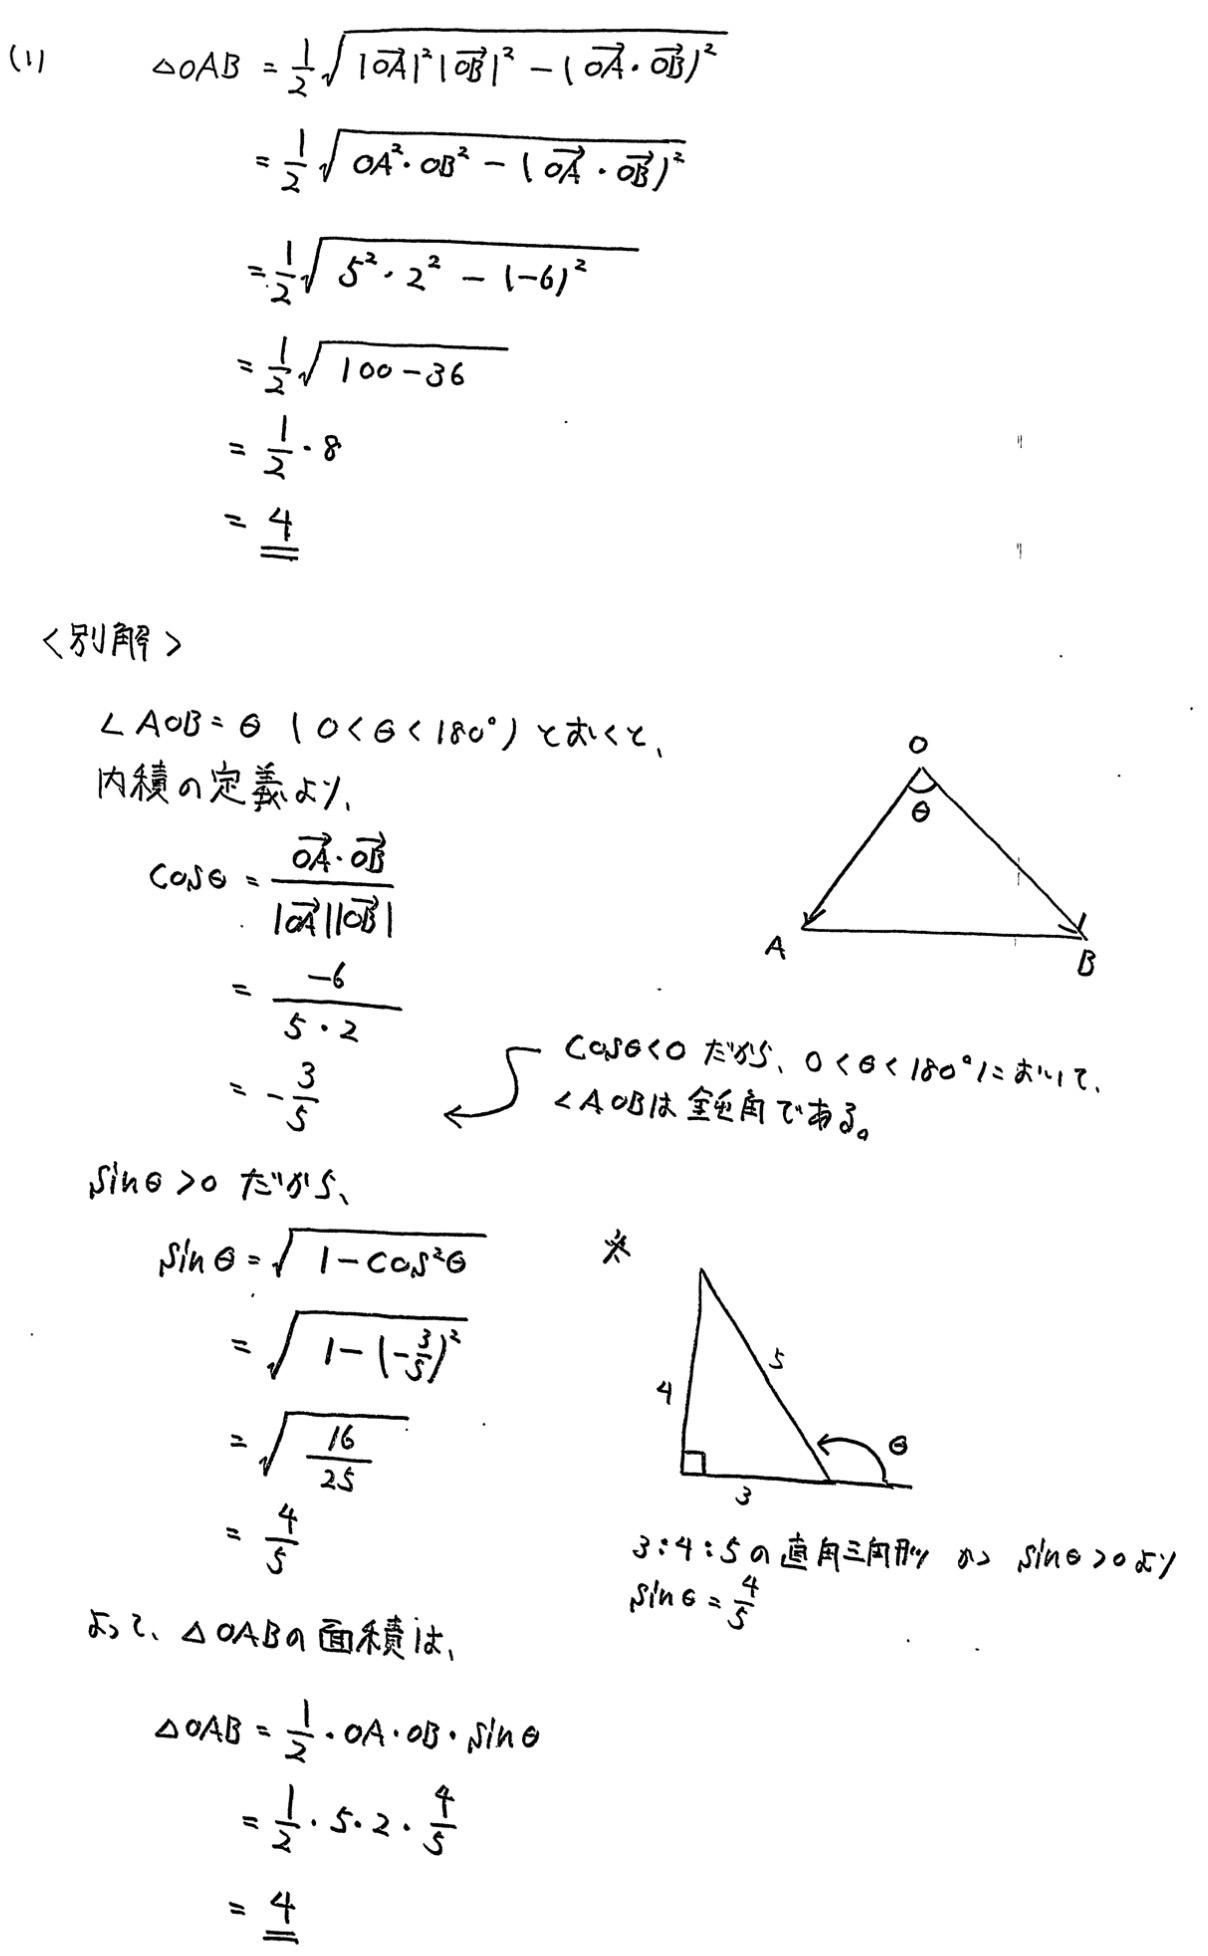 (1) △OAB = 1/2 √(|OA→|²|OB→|² − (OA→・OB→)²)
= 1/2 √(OA²・OB² − (OA→・OB→)²)
= 1/2 √(5²・2² − (−6)²)
= 1/2 √(100 − 36)
= 1/2・8
= 4
<別解>
∠AOB = θ (0 < θ < 180°) とおくと、
内積の定義より、
cosθ = OA→・OB→ / |OA→||OB→|
= −6 / 5・2
= −3/5
O
θ
A
B
cosθ<0 だから、0 < θ < 180°において、
∠AOBは鈍角である。
sinθ > 0 だから、
sinθ = √(1 − cos²θ)
= √(1 − (−3/5)²)
= √(16/25)
= 4/5
※
5
4
θ
3
3:4:5の直角三角形 かつ sinθ>0より
sinθ = 4/5
よって、△OABの面積は、
△OAB = 1/2・OA・OB・sinθ
= 1/2・5・2・4/5
= 4